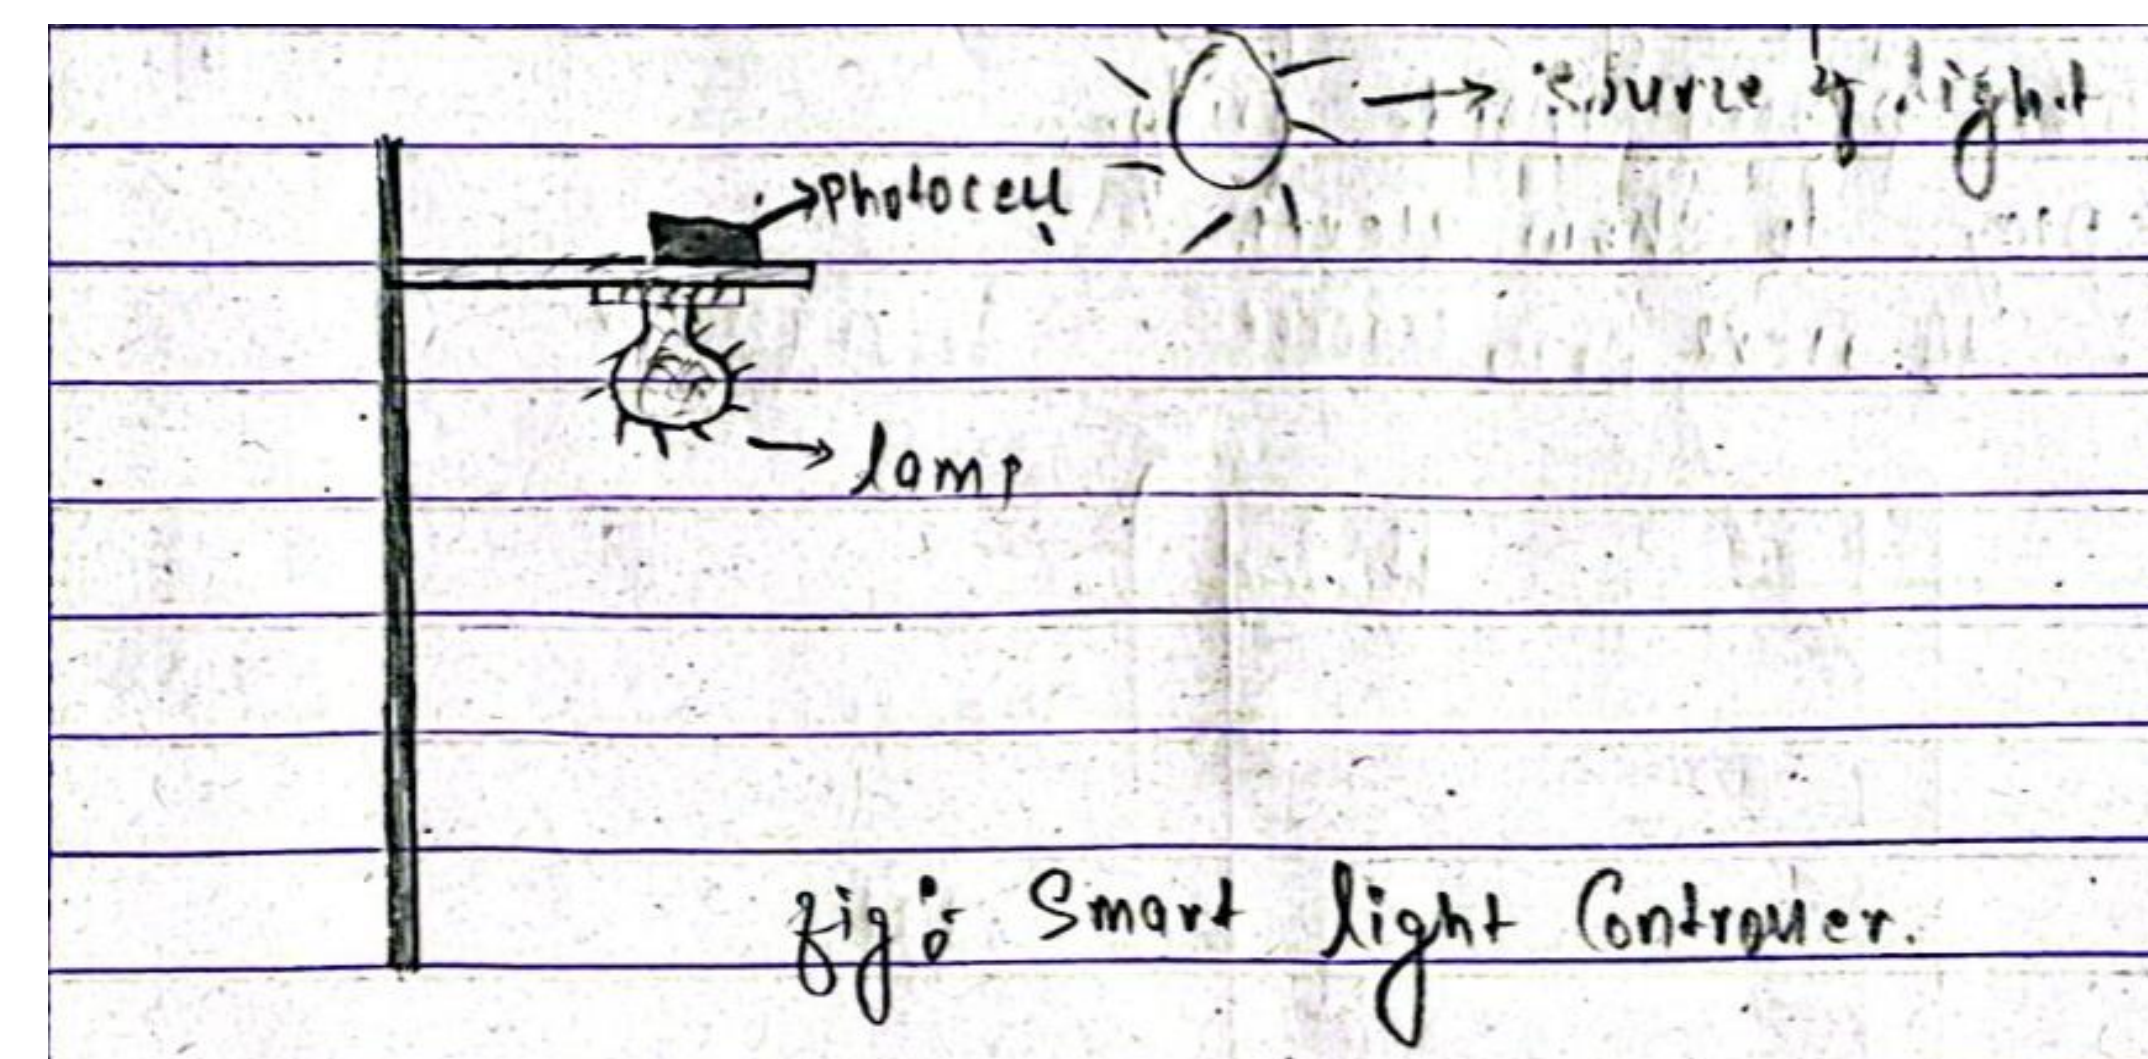 source of light
Photocell
lamp
fig: Smart light Controller.